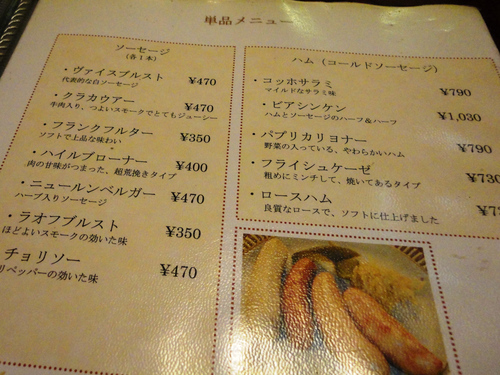 単品メニュー
ソーセージ
(各1本)
・ヴァイスブルスト ¥470
代表的な白ソーセージ
・クラカウアー ¥470
牛肉入り、つよいスモークでとてもジューシー
・フランクフルター ¥350
ソフトで上品な味わい
・ハイルブローナー ¥400
肉の甘味がつまった、超荒挽きタイプ
・ニュールンベルガー ¥470
ハーブ入りソーセージ
・ラオフブルスト ¥350
ほどよいスモークの効いた味
チョリソー ¥470
リペッパーの効いた味
ハム (コールドソーセージ)
・コッホサラミ ¥790
マイルドなサラミ味
・ビアシンケン ¥1,030
ハムとソーセージのハーフ&ハーフ
・パプリカリヨナー ¥790
野菜の入っている、やわらかいハム
・フライシュケーゼ ¥730
粗めにミンチして、焼いてあるタイプ
・ロースハム
良質なロースで、ソフトに仕上げました